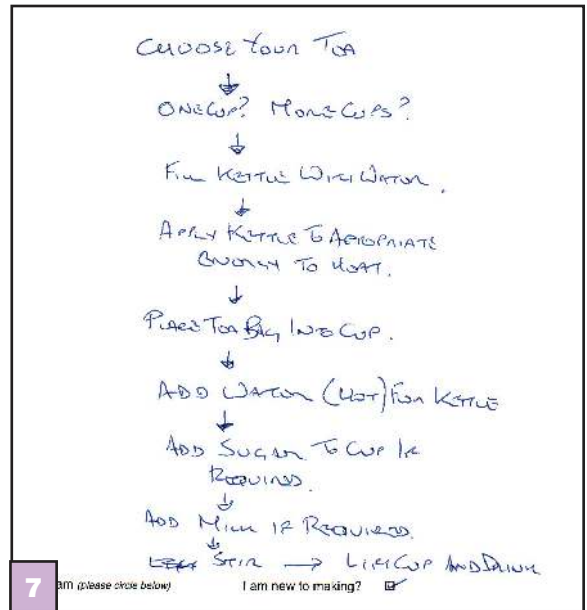 CHOOSE YOUR TEA
ONE CUP? MORE CUPS?
FILL KETTLE WITH WATER.
APPLY KETTLE TO APROPRIATE
ENERGY TO HEAT.
PLACE TEA BAG INTO CUP.
ADD WATER (HOT) FOM KETTLE
ADD SUGAR TO CUP IF
REQUIRED.
ADD MILK IF REQUIRED.
STIR → LIFT CUP AND DRINK
7 am (please circle below) I am new to making?